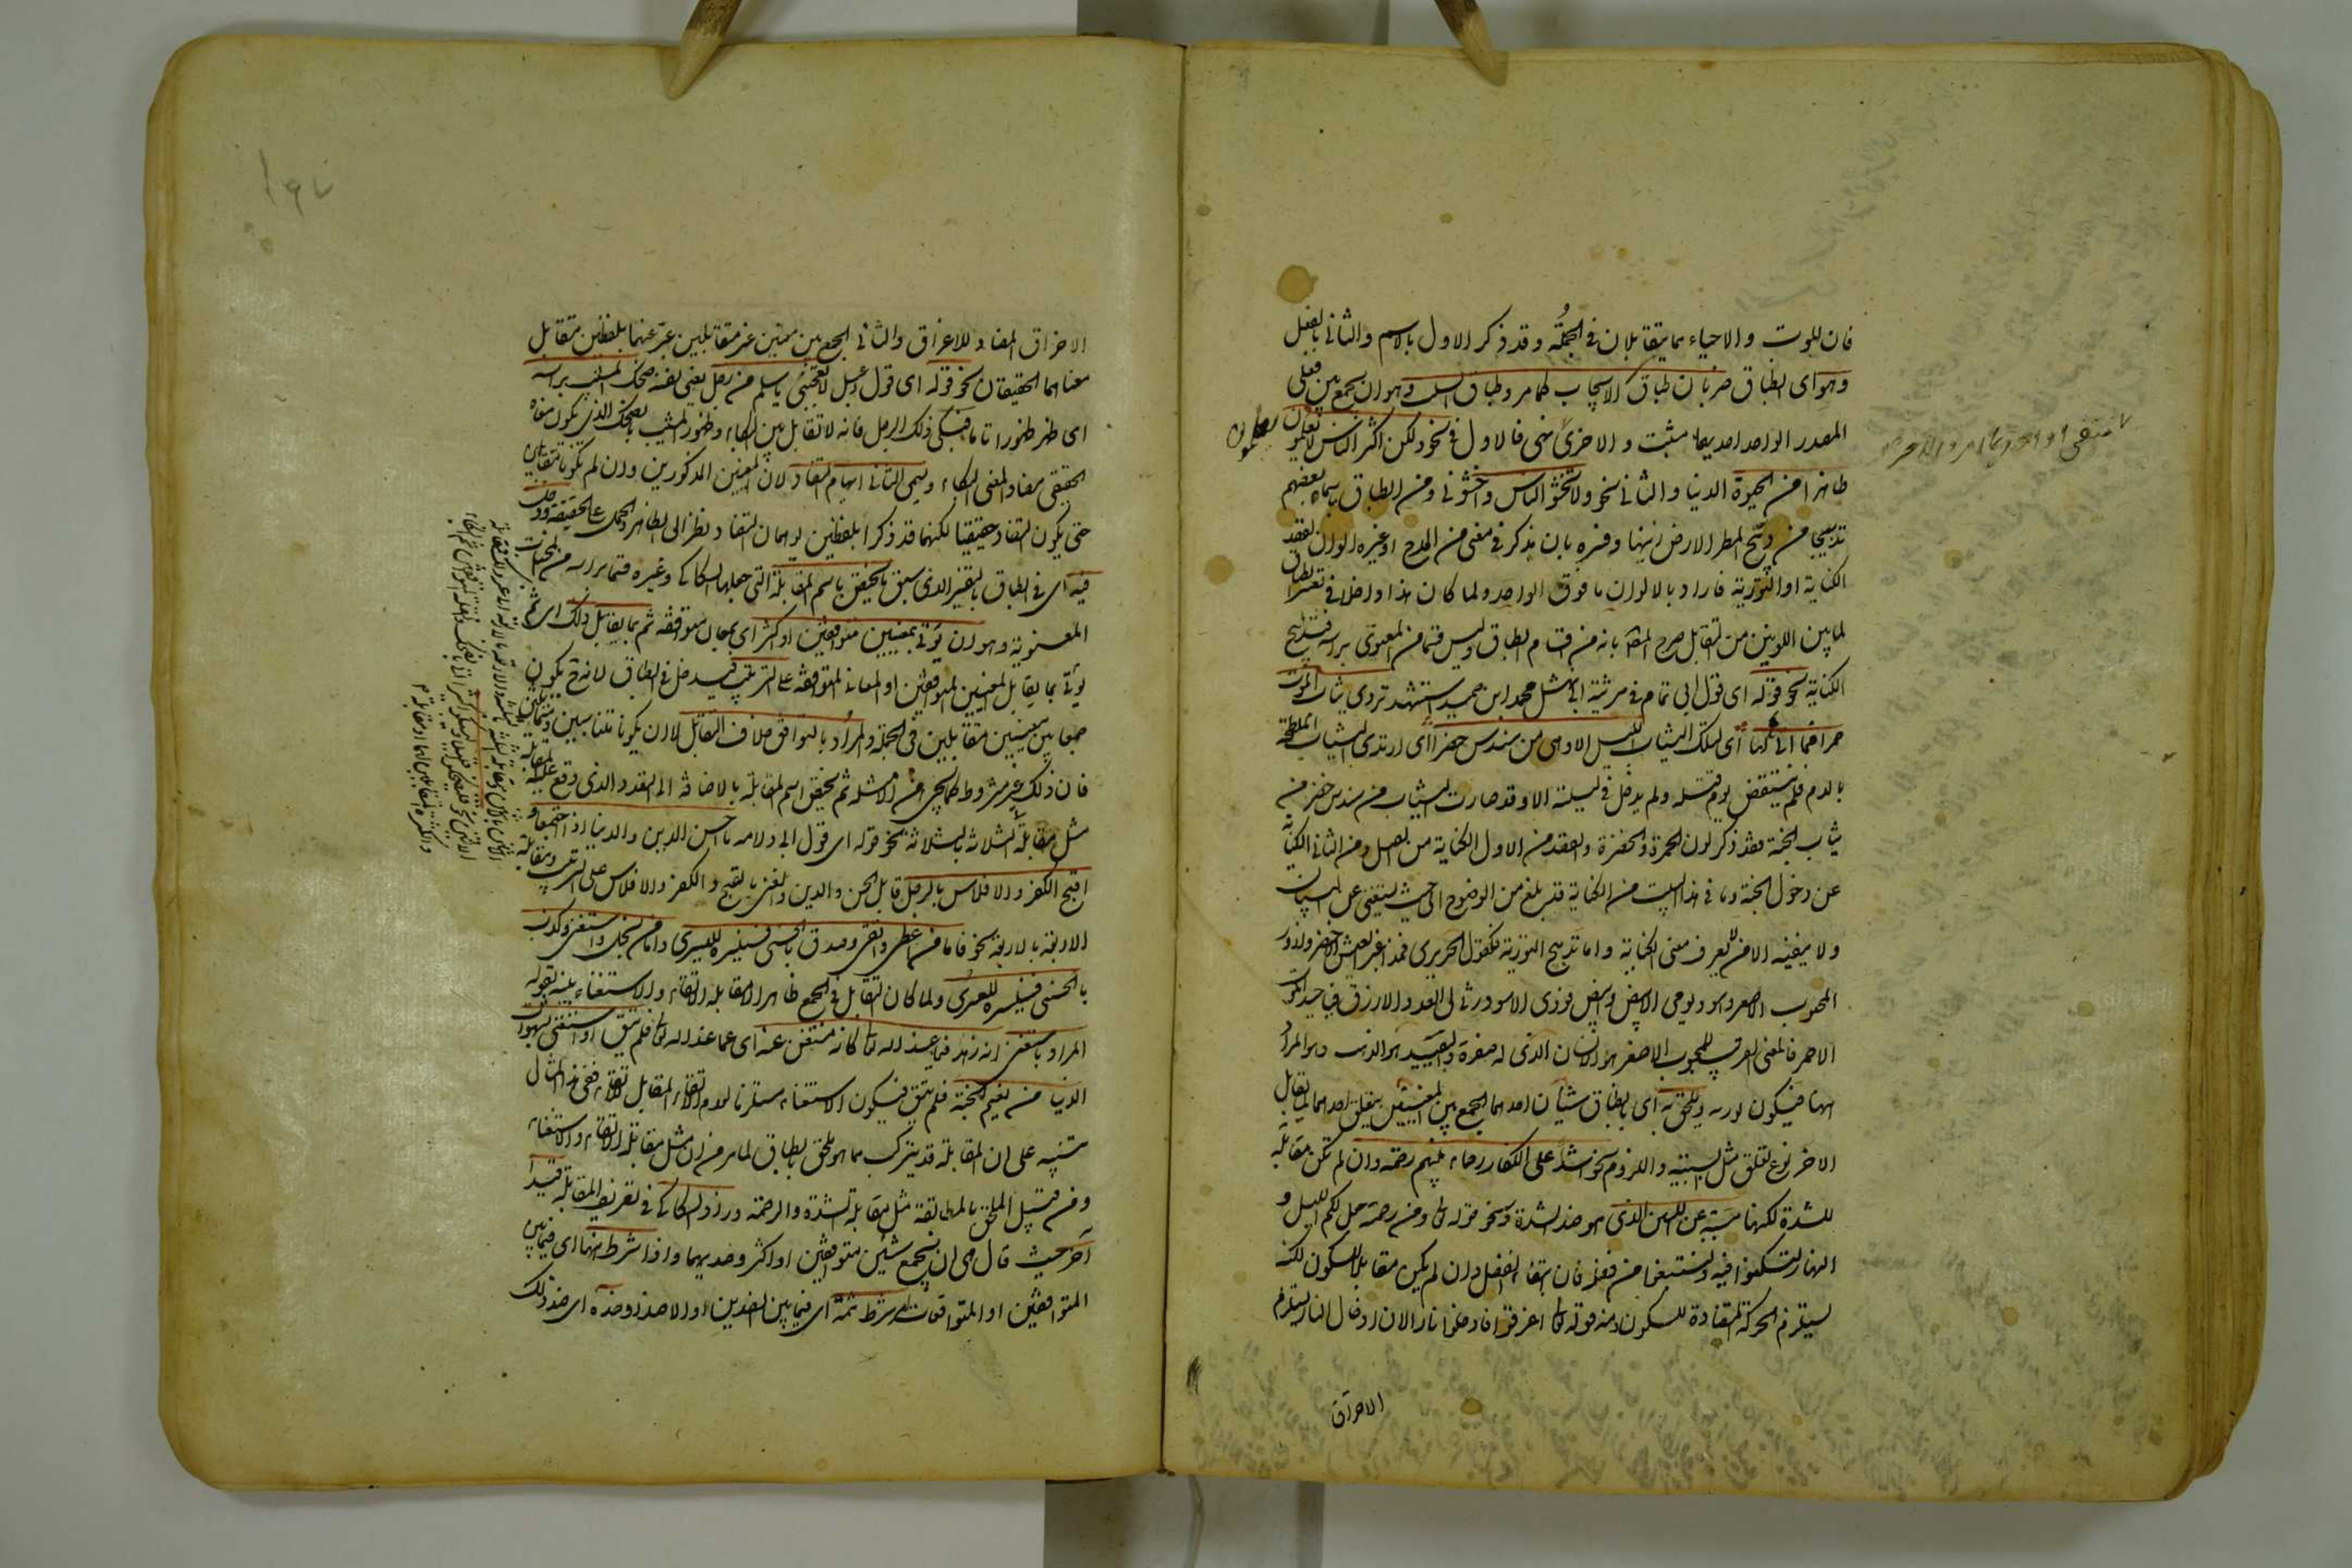 فان الموت والاحياء مما يتقابلان فى الجملة وقد ذكر الاول بالاسم والثانى بالفعل
وهو اى الطباق ضربان طباق الايجاب كما مر وطباق السلب وهو ان يجمع بين فعلى
المصدر الواحد احدهما مثبت والاخر منهى فالاول نحو ولكن اكثر الناس لا يعلمون يعلمون
ظاهرا من الحيوة الدنيا والثانى نحو ولا تخشوا الناس واخشونى ومن الطباق ما سماه بعضهم
تدبيجا من دبج المطر الارض زينها وفسره بان يذكر فى معنى من المدح او غيره الوان لقصد
الكناية او التورية فاراد بالالوان ما فوق الواحد ولما كان هذا داخلا فى تفسير الطباق
لما بين اللونين من التقابل صرح المصنف بانه من اقسام الطباق وليس قسما من المعنوى براسه فتدبيج
الكناية نحو قوله اى قول ابى تمام فى مرثية ابى نهشل محمد ابن حميد استشهد تردى ثياب الموت
حمرا فما اتى لها اى لتلك الثياب الليل الا وهى من سندس خضر اى ارتدى الثياب الملطخة
بالدم فلم ينقض يوم قتله ولم يدخل فى ليلته الا وقد صارت الثياب من سندس خضر من
ثياب الجنة فقد ذكر لون الحمرة والخضرة والقصد من الاول الكناية من القتل ومن الثانى الكناية
عن دخول الجنة وما فى هذا البيت من الكناية قد بلغ من الوضوح الى حيث يستغنى عن البيان
ولا ينفيه الا من لا يعرف معنى الكناية واما تدبيج التورية فكقول الحريرى فمذ اغبر العيش الاخضر وازور
المحبوب الاصفر واسود يومى الابيض وابيض فودى الاسود رثى لى العدو الازرق فيا حبذا الموت
الاحمر فالمعنى القريب للمحبوب الاصفر هو الانسان الذى له صفرة والبعيد هو الذهب وهو المراد
ههنا فيكون تورية ويلحق به اى بالطباق شيئان احدهما الجمع بين المعنيين يتعلق احدهما بما يقابل
الاخر نوع تعلق مثل السببية واللزوم نحو اشداء على الكفار رحماء بينهم رحمة وان لم تكن مقابلة
للشدة لكنها مسببة عن اللين الذى هو ضد الشدة ونحو قوله تعالى ومن رحمته جعل لكم الليل و
النهار لتسكنوا فيه ولتبتغوا من فضله فان ابتغاء الفضل وان لم يكن مقابلا للسكون لكنه
يستلزم الحركة المضادة للسكون ومنه قوله تعالى اغرقوا فادخلوا نارا لان ادخال النار يستلزم
الاحراق
الاحراق المضاد للاغراق والثانى الجمع بين معنيين غير متقابلين عبر عنهما بلفظين متقابل
معناهما الحقيقيان نحو قوله اى قول دعبل لا تعجبى يا سلم من رجل يعنى نفسه ضحك المشيب براسه
اى ظهر ظهورا تاما فبكى ذلك الرجل فانه لا تقابل بين البكاء وظهور المشيب بالضحك الذى يكون معناه
الحقيقى مضاد المعنى البكاء ويسمى الثانى ايهام التضاد لان المعنيين المذكورين وان لم يكونا متقابلين
حتى يكون التضاد حقيقيا لكنهما قد ذكرا بلفظين يوهمان التضاد نظرا الى الظاهر والحمل على الحقيقة ودخل
فيه اى فى الطباق بالتفسير الذى سبق ما يختص باسم المقابلة التى جعلها السكاكى وغيره قسما براسه من المحسنات
المعنوية وهو ان يؤتى بمعنيين متوافقين او اكثر اى بمعان متوافقة ثم بما يقابل ذلك اى ثم
يؤتى بما يقابل المعنيين المتوافقين او المعانى المتوافقة على الترتيب فيدخل فى الطباق لانه ح يكون
جمعا بين معنيين متقابلين فى الجملة والمراد بالتوافق خلاف التقابل لا ان يكونا متناسبين ومتماثلين
فان ذلك غير مشروط كما يجئ من الامثلة ثم يختص اسم المقابلة بالاضافة الى العدد الذى وقع عليه المقابلة
مثل مقابلة الثلاثة بالثلاثة نحو قوله اى قول ابى دلامه ما احسن الدين والدنيا اذا اجتمعا و
اقبح الكفر والافلاس بالرجل قابل الحسن والدين والغنى بالقبح والكفر والافلاس على الترتيب ومقابلة
الاربعة بالاربعة نحو فاما من اعطى واتقى وصدق بالحسنى فسنيسره لليسرى واما من بخل واستغنى وكذب
بالحسنى فسنيسره للعسرى ولما كان التقابل فى الجميع ظاهرا الا مقابلة الاتقاء والاستغناء بينه بقوله
المراد باستغنى انه زهد فيما عند الله تعالى كانه مستغن عنه اى عما عند الله تعالى فلم يتق او استغنى بشهوات
الدنيا من نعيم الجنة فلم يتق فيكون الاستغناء مستلزما لعدم الاتقاء المقابل للاتقاء ففى هذا المثال
تنبيه على ان المقابلة قد يتركب مما هو ملحق بالطباق لما مر من ان مثل مقابلة الاتقاء والاستغناء
ومن قبيل الملحق بالمطابقة مثل مقابلة الشدة والرحمة وزاد السكاكى فى تعريف المقابلة قيدا
آخر حيث قال هى ان تجمع بين شيئين متوافقين او اكثر وضديهما واذا شرط ههنا اى فيما بين
المتوافقين او المتوافقات امر شرط ثمة اى فيما بين الضدين او الاضداد وضده اى ضد ذلك